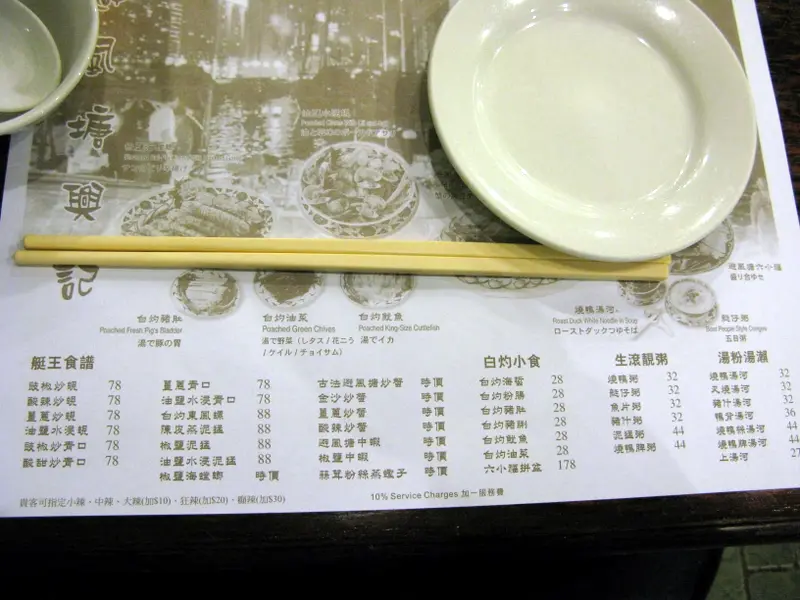 風塘興記
油鹽水浸蜆
避風塘六小福
盛り合わせ
台灼豬肚
Poached Fresh Pig's Bladder
湯で豚の胃
台灼油菜
Poached Green Chives
湯で野菜(しタス/花こう
/ケイル/チョイサム)
台灼魷魚
Poached King-Size Cuttlefish
湯でイカ
燒鴨湯河
Roast Duck White Noodle in Soup
ローストダックつゆそば
艇仔粥
Boat People Style Congee
五目粥
艇王食譜
豉椒炒蜆 78
酸辣炒蜆 78
薑蔥炒蜆 78
油鹽水浸蜆 78
豉椒炒青口 78
酸甜炒青口 78
薑蔥青口 78
油鹽水浸青口 78
台灼東風螺 88
陳皮蒸泥鯭 88
椒鹽泥鯭 88
油鹽水浸泥鯭 88
椒鹽海螳螂 時價
古法避風塘炒蟹 時價
金沙炒蟹 時價
薑蔥炒蟹 時價
酸辣炒蟹 時價
避風塘中蝦 時價
椒鹽中蝦 時價
蒜茸粉絲蒸蟶子 時價
白灼小食
台灼海蜇 28
台灼粉腸 28
台灼豬肚 28
台灼豬膶 28
台灼魷魚 28
台灼油菜 28
六小福拼盆 178
生滾靚粥
燒鴨粥 32
艇仔粥 32
魚片粥 32
豬什粥 32
泥鯭粥 44
燒鴨髀粥 44
湯粉湯瀨
燒鴨湯河 32
叉燒湯河 32
豬什湯河 32
鴨脊湯河 36
燒鴨髀湯河 44
燒鴨髀湯河 44
上湯河 27
貴客可指定小辣、中辣、大辣(加$10)、狂辣(加$20)、癲辣(加$30)
10% Service Charges 加一服務費